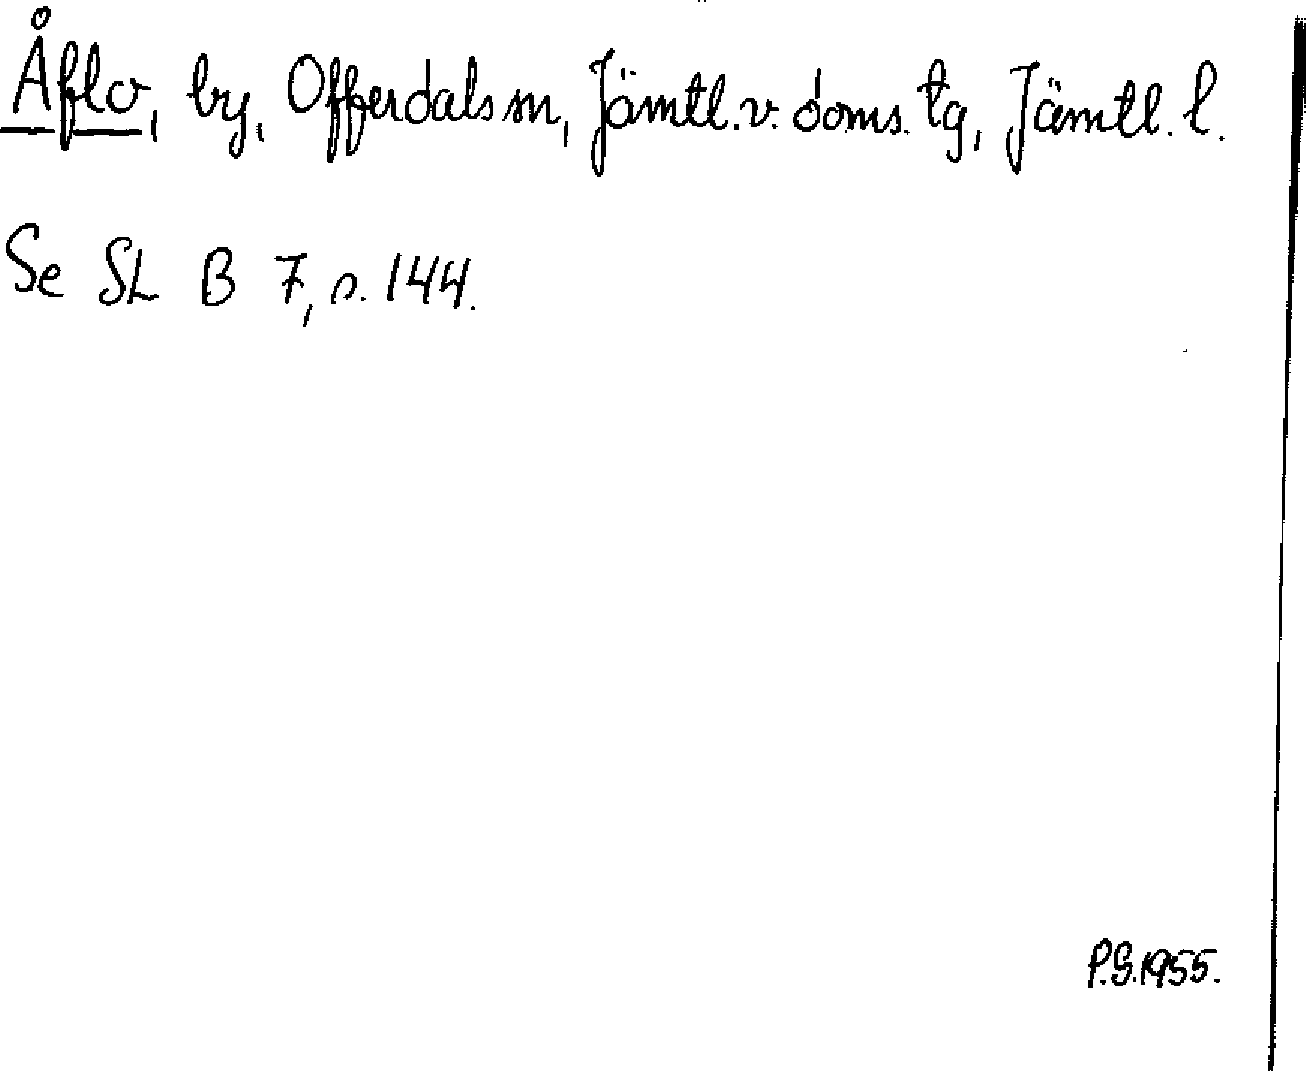 Åflo, by, Offerdals sn, Jämtl. v. doms. tg, Jämtl. l.
Se SL B 7, s. 144.
P.G. 1955.